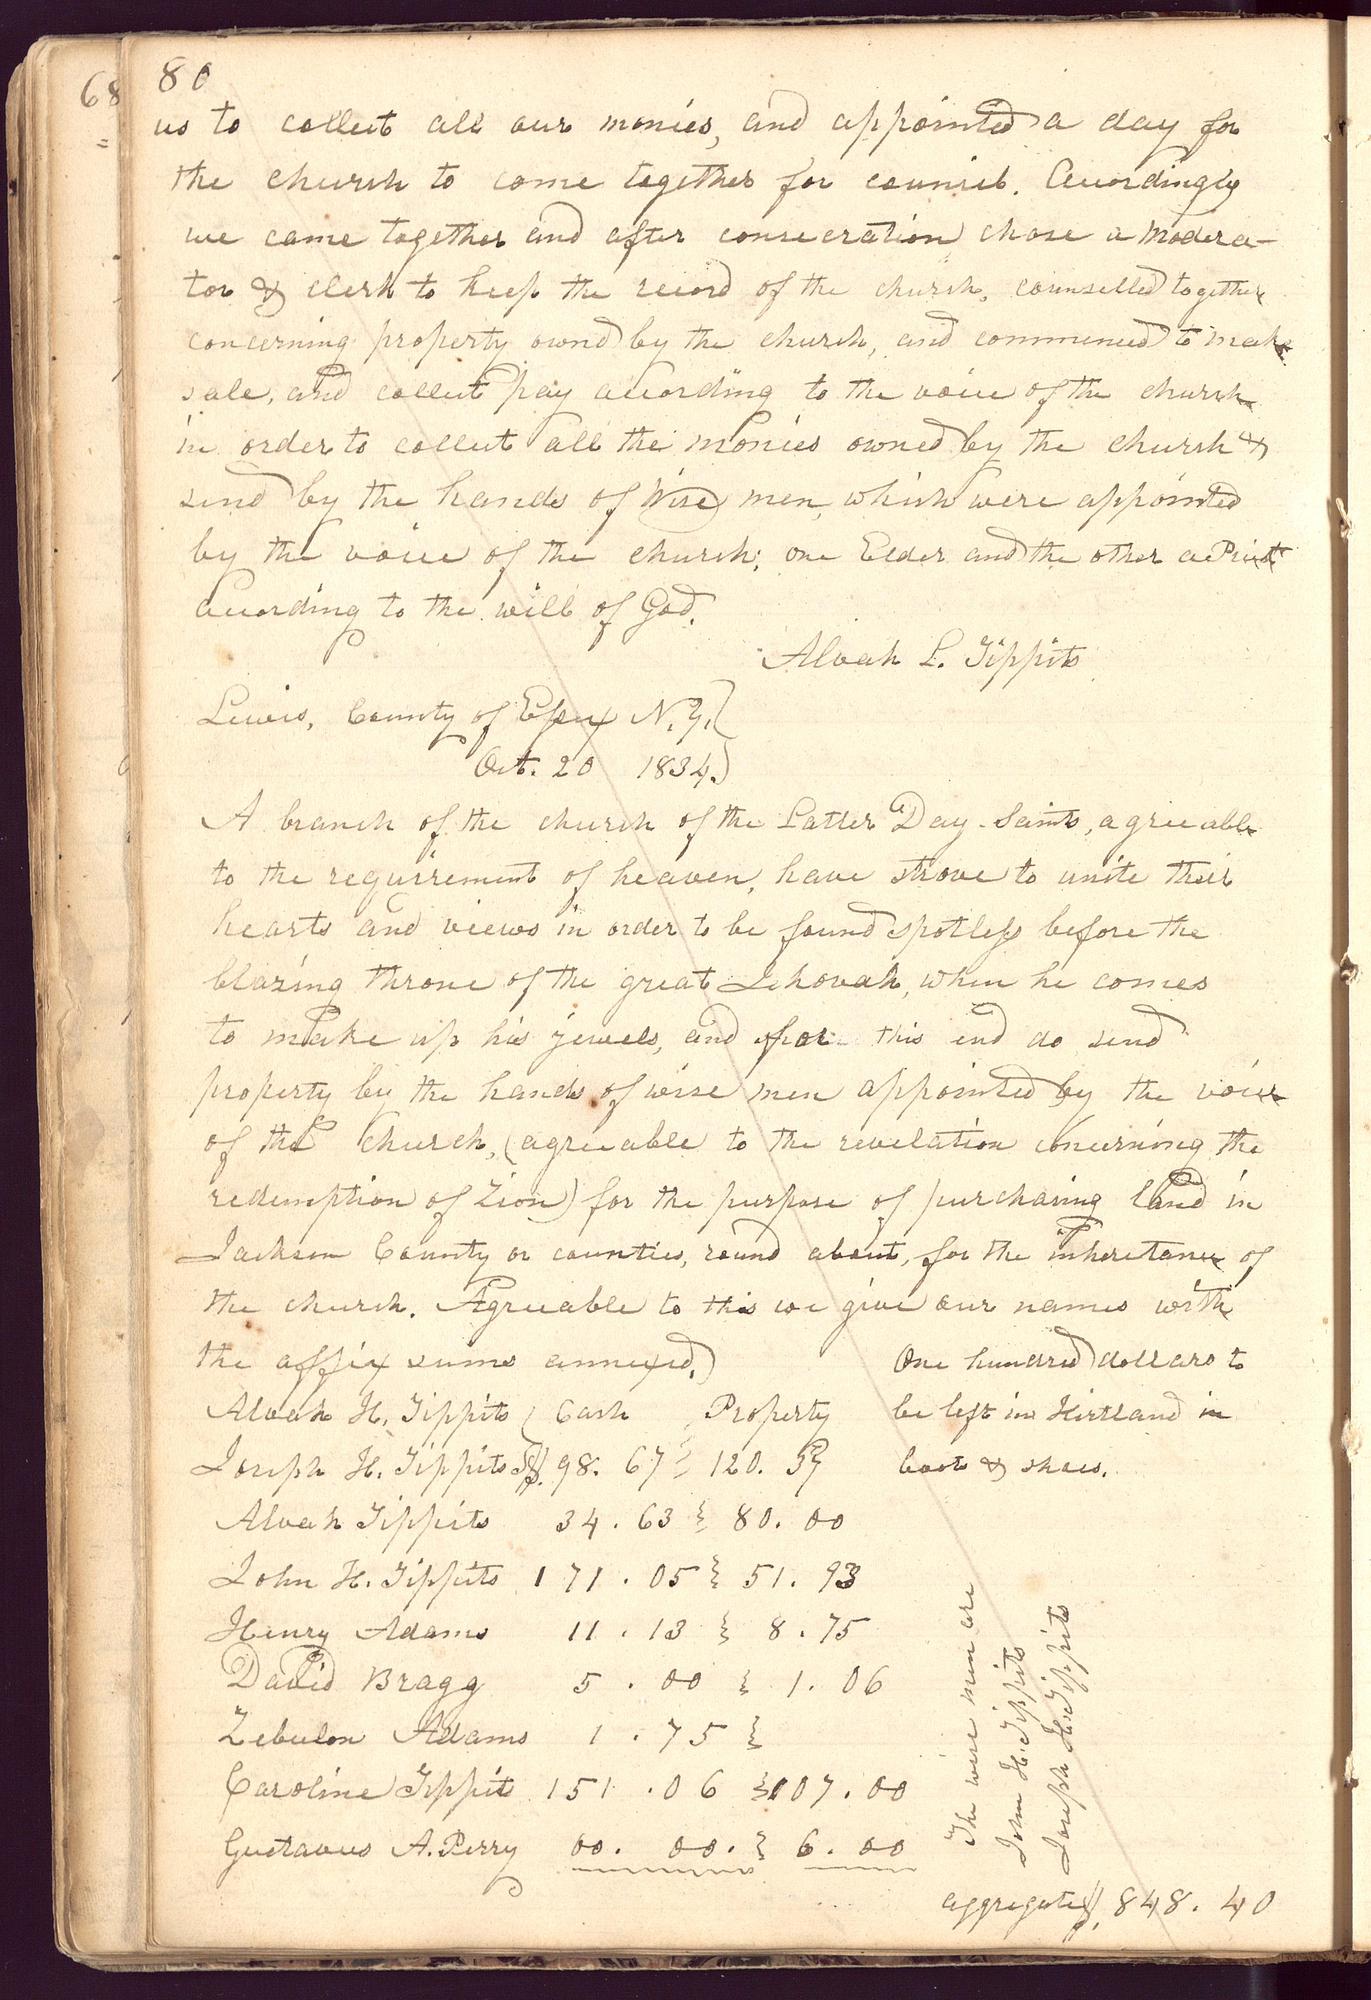 68
80
us to collect all our monies, and appointed a day for
the church to come together for council. Accordingly
we came together and after consecration chose a Modera-
tor & clerk to keep the record of the church, counselled together
concerning property ownd by the church, and commenced to make
sale, and collect pay according to the voice of the church
in order to collect all the monies owned by the church &
send by the hands of Wise men, which were appointed
by the voice of the church; one Elder and the other a Priest
according to the will of God.
Alvah L. Tippits
Lewis, County of Essex N.Y.
Oct. 20 1834.
A branch of the church of the Latter Day Saints, agreeable
to the requirement of heaven, have strove to unite their
hearts and views in order to be found spotless before the
blazing throne of the great Jehovah, when he comes
to make up his jewels, and for this end do send
property by the hands of wise men appointed by the voice
of the church, (agreeable to the revelation concerning the
redemption of Zion) for the purpose of purchasing land in
Jackson County or counties, round about, for the inheretance of
the church. Agreeable to this we give our names with
the affix sums annexed.)
One hundred dollars to
be left in Kirtland in
boot & shoes.
Alvah H. Tippits Cash Property
Joseph H. Tippits $98.67 120.57
Alvah Tippits 34.63 80.00
John H. Tippits 171.05 51.93
Henry Adams 11.13 8.75
David Bragg 5.00 1.06
Zebulon Adams 1.75
Caroline Tippits 151.06 107.00
Gustavus A. Perry 00.00. 6.00
The wise men are
John H. Tippits
Joseph H. Tippits
aggregate $848.40